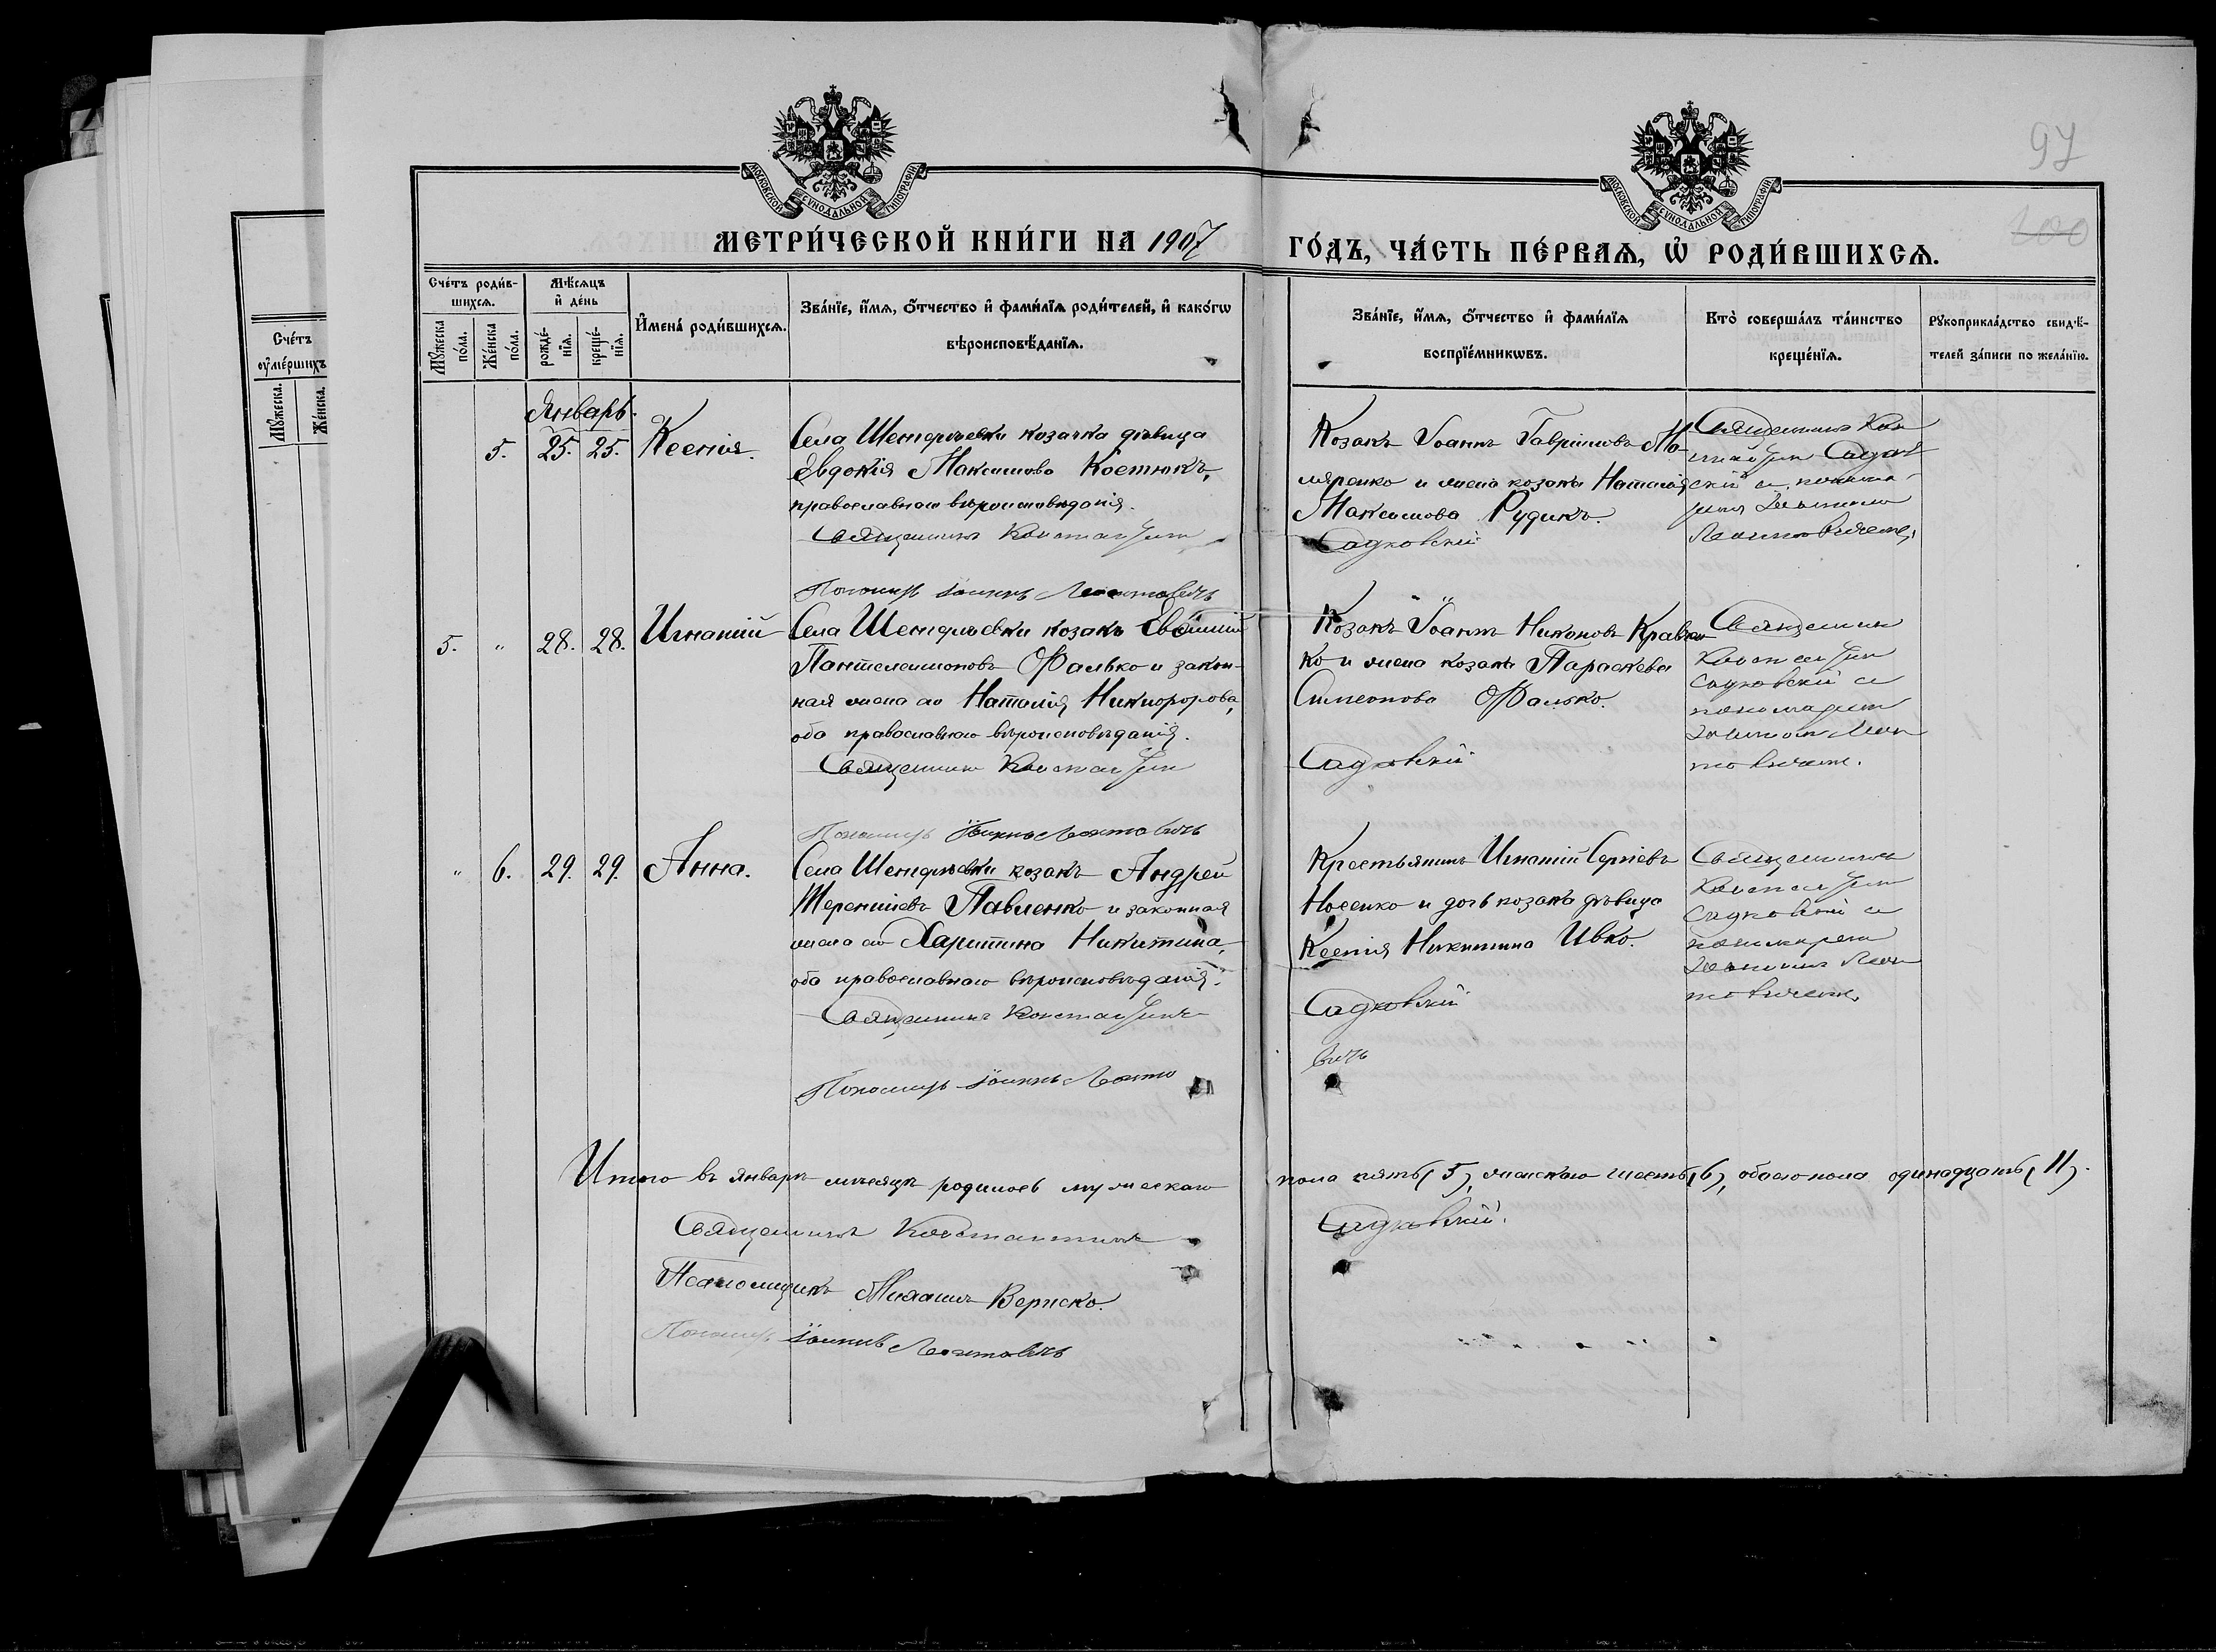 МОСКОВСКОЙ СУНОДАЛЬНОЙ ТИПОГРАФІИ
МОСКОВСКОЙ СУНОДАЛЬНОЙ ТИПОГРАФІИ
97
200
МЕТРИ́ЧЕСКОЙ КНИ́ГИ НА 1907
ГО́ДЪ, ЧА́СТЬ ПЕ́РВАѦ, Ѡ҆ РОДИ́ВШИХСѦ.
Сче́тъ
ᲂу҆ме́ршихъ
Мꙋ́жеска.
Же́нска.
Сче́тъ роди́в-
шихсѧ.
Мꙋ́жеска
по́ла.
Же́нска
по́ла.
Мѣ́сѧцъ
и҆ де́нь
рожде́-
нїѧ.
креще́-
нїѧ.
И҆мена̀ роди́вшихсѧ.
Зва́нїе, и҆́мѧ, ѻ҆́тчество и҆ фами́лїѧ роди́телей, и҆ како́гѡ
вѣроисповѣ́данїѧ.
Зва́нїе, и҆́мѧ, ѻ҆́тчество и҆ фами́лїѧ
воспрїе́мникѡвъ.
Кто̀ соверша́лъ та́инство
креще́нїѧ.
Рꙋкоприкла́дство свидѣ́-
телей за́писи по жела́нїю.
Январь.
5. 25. 25. Ксенія.
Села Шендрѣевки козачка дѣвица
Евдокія Максимова Костюкъ,
православнаго вѣроисповѣданія.
Священникъ Константинъ
Пономарь Іоаннъ Леонтовичъ
Козакъ Іоаннъ Гавріиловъ
и жена козака Наталія
Максимова Рудикъ.
Садковскій
Священникъ Кон
Садков
скій
Іоанномъ
Леонтовичемъ,
5. " 28. 28. Игнатій
Села Шендрѣевки козакъ Евѳимій
Пантелеимоновъ Фалько и закон-
ная жена его Наталія Никифорова,
оба православнаго вѣроисповѣданія.
Священникъ Константинъ
Пономарь Іоаннъ Леонтовичъ
Козакъ Іоаннъ Никоновъ Кравчен
ко и жена козака Параскева
Симеонова Фалько.
Садковскій
Священникъ
Константинъ
Садковскій съ
пономаремъ
Іоанномъ Леон
товичемъ.
" 6. 29. 29. Анна.
Села Шендрѣевки козакъ Андрей
Терентіевъ Павленко и законная
жена его Харитина Никитина,
оба православнаго вѣроисповѣданія.
Священникъ Константинъ
Пономарь Іоаннъ Леонто
Крестьянинъ Игнатій Сергіевъ
Носенко и дочь козака дѣвица
Ксенія Никитина Ивко.
Садковскій
вичъ
Священникъ
Константинъ
Садковскій съ
пономаремъ
Іоанномъ Леон
товичемъ.
Итого въ январѣ мѣсяцѣ родилось мужескаго
пола пять (5), женскаго шесть (6), обоего пола одинадцать (11).
Священникъ Константинъ
Садковскій.
Псаломщикъ
Пономарь Іоаннъ Леонтовичъ